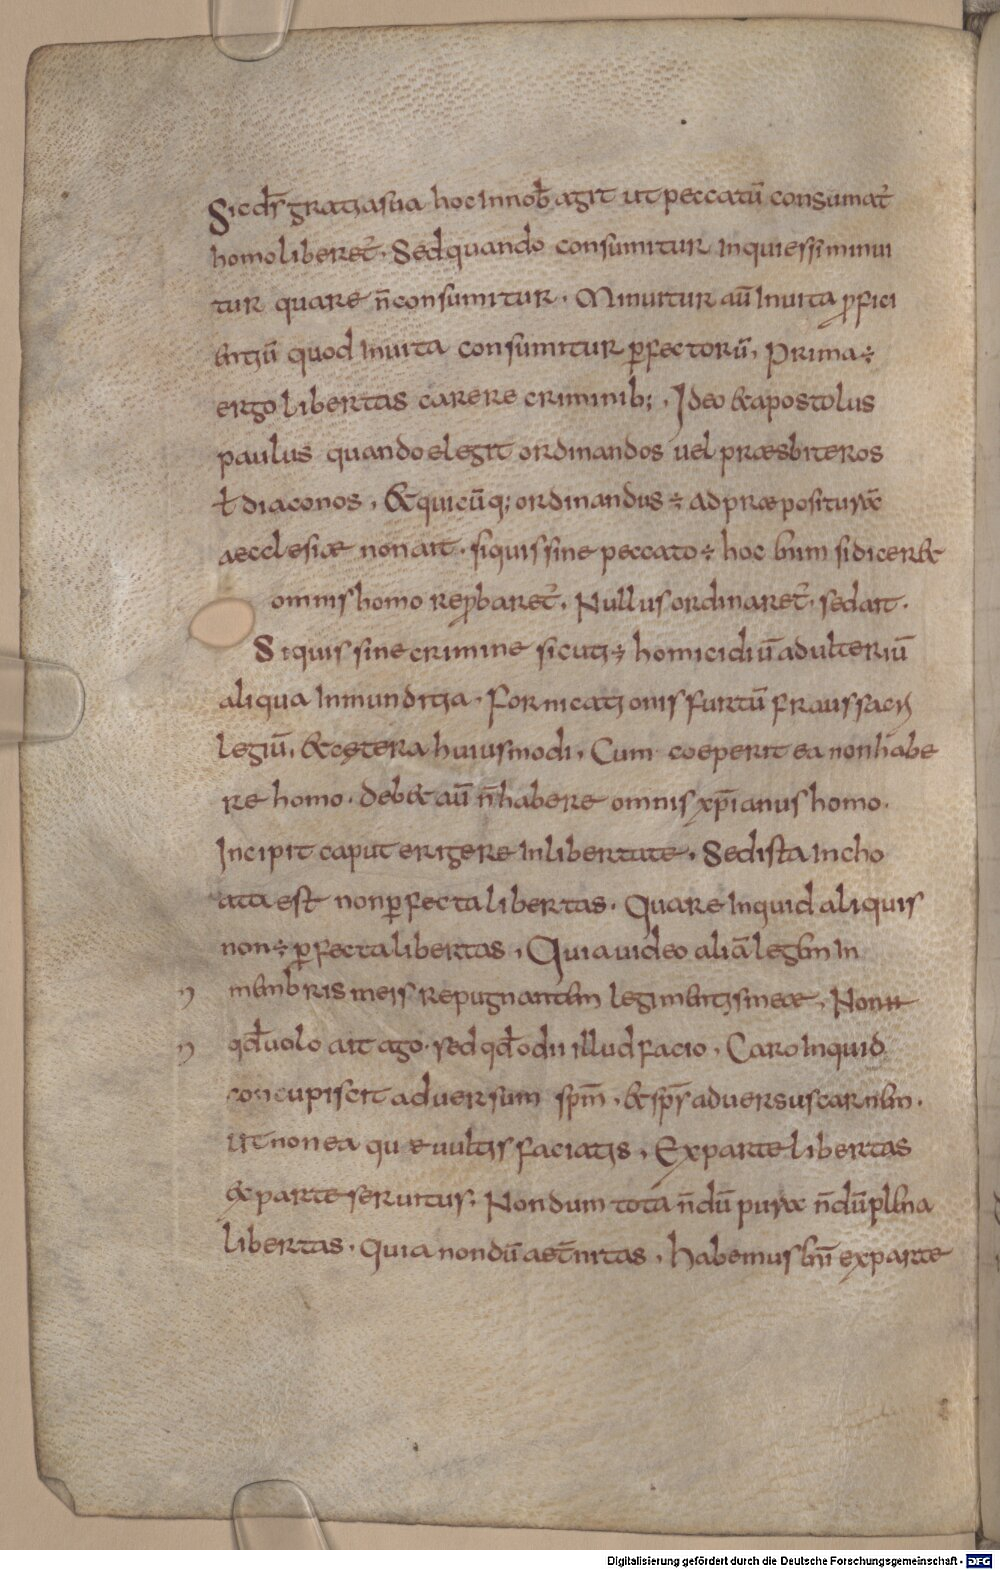 Sic dr̄ gratia sua hoc in nob̄ agit ut peccatū consumat̄
homo liberet̄. Sed quando consumitur in qui es si minui
tur quare n̄ consumitur. Minuitur aū In uita ꝓfici
entiū quod In uita consumitur ꝑfectorū, Prima ÷
ergo libertas carere criminib;. Ideo & apostolus
paulus quando elegit ordinandos uel præsbiteros
ł diaconos, & quicūq; ordinandus ÷ ad præposituræ
aecclesiæ non ait. siquis sine peccato ÷ hoc enim si dicer&
omnis homo reꝓbaret̄. Nullus ordinaret̄. sed ait.
Siquis sine crimine sicuti ÷ homicidiū adulteriū
aliqua Inmunditia. Fornicationis furtū fraus sacri
legiū, & cętera huiusmodi, Cum coeperit ea non habe
re homo. deb& aū n̄ habere omnis xp̄ianus homo.
Incipit caput erigere In libertate. Sed ista Incho
ata est non ꝑfecta libertas. Quare Inquid aliquis
non ÷ ꝑfecta libertas, Quia uideo aliā legem In
membris meis repugnantem legi mentis meæ, Non
qd̄ uolo ait ago. sed qd̄ odii illud facio, Caro Inquid
concupiscit aduersum spm̄. & sps̄ aduersus carnem.
ut non ea quę uultis faciatis, Ex parte libertas
ex parte seruitus. Nondum tota n̄dū puræ n̄dū plena
libertas. Quia nondū aet̄nitas, habemus eni̅ ex parte
Digitalisierung gefördert durch die Deutsche Forschungsgemeinschaft - DFG